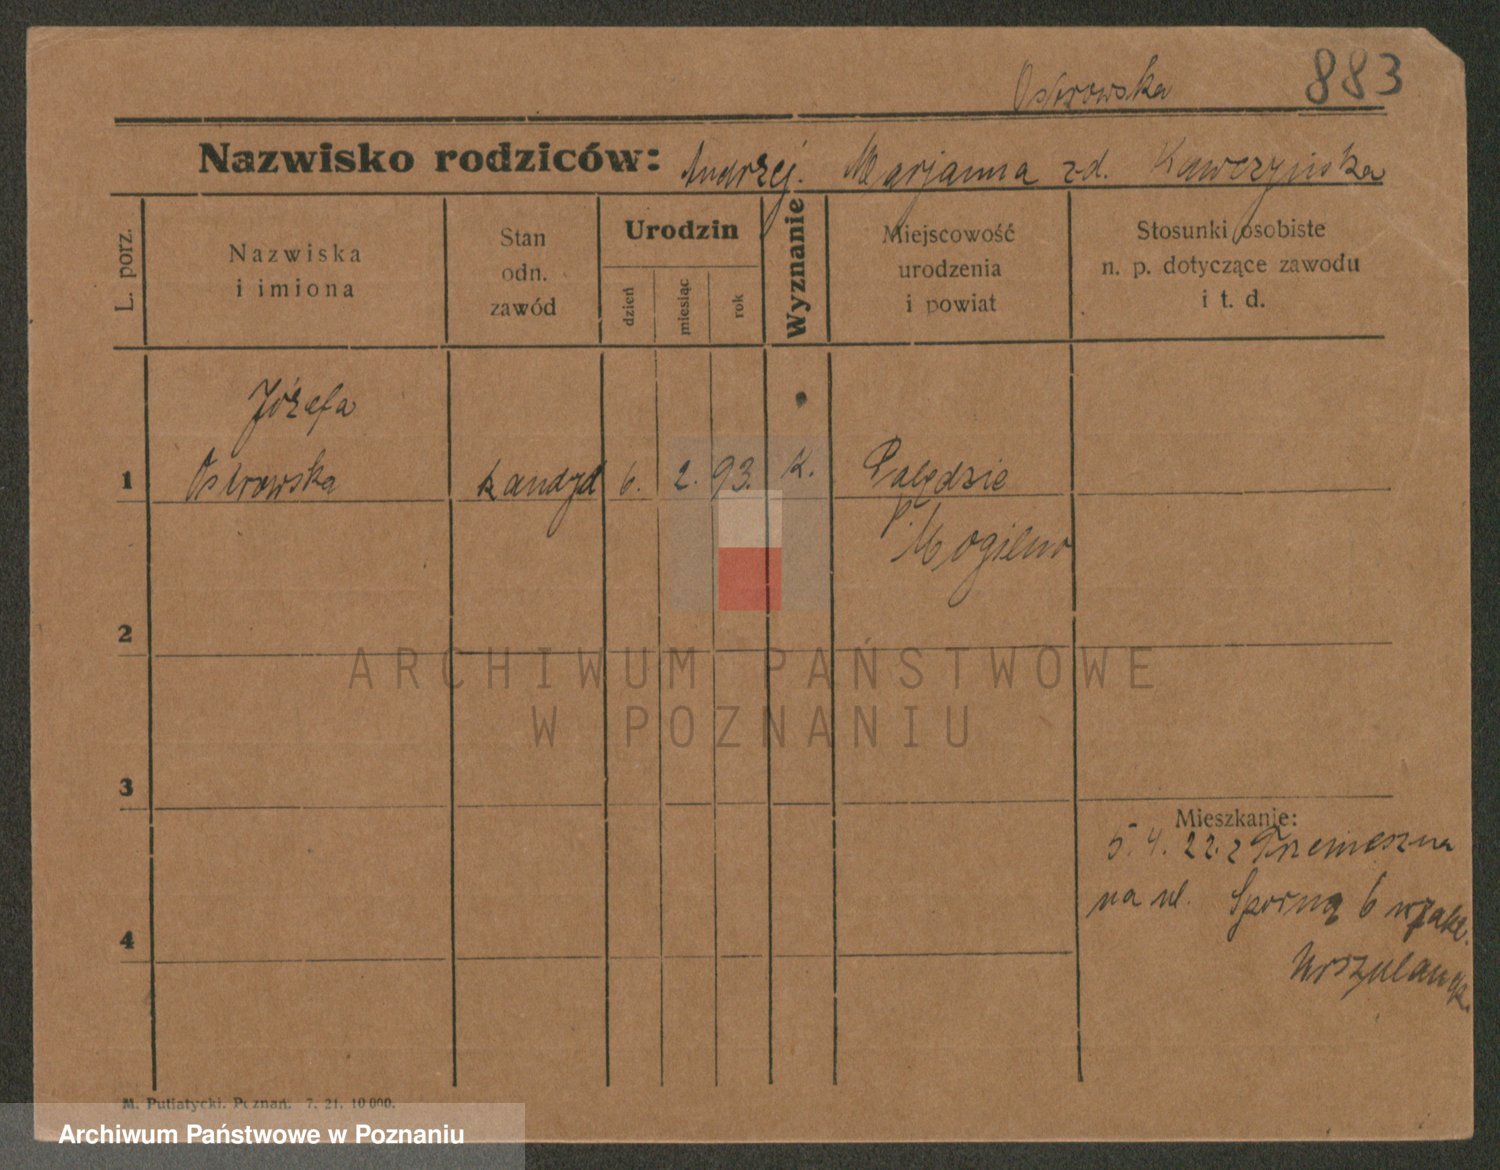 Ostrowska 883
Nazwisko rodziców: Andrzej. Marjanna zd. Kawczyńska
L. porz.
Nazwiska
i imiona
Stan
odn.
zawód
Urodzin
dzień
miesiąc
rok
Wyznanie
Miejscowość
urodzenia
i powiat
Stosunki osobiste
n. p. dotyczące zawodu
i t. d.
Józefa
1 Ostrowska kandyd 6. 2. 93. k. Palędzie
p. Mogilno
2
ARCHIWUM PAŃSTWOWE
W POZNANIU
3
Mieszkanie:
5. 4. 22. z Trzemeszna
na ul. Sporną 6 w zakł.
4
Urszulanek.
M. Putiatycki. Poznań. 7. 21. 10 000.
Archiwum Państwowe w Poznaniu